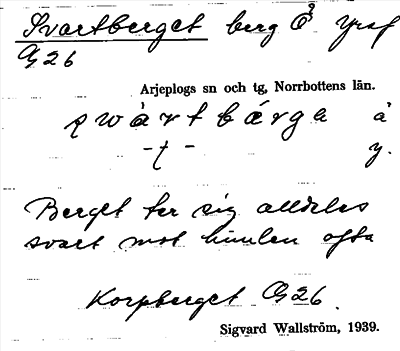 Svartberget berg Å yraf
G 26
Arjeplogs sn och tg, Norrbottens län.
swàrtbárga à
-t- y.
Berget ter sig alldeles
svart mot himlen ofta
Korpberget G 26.
Sigvard Wallström, 1939.